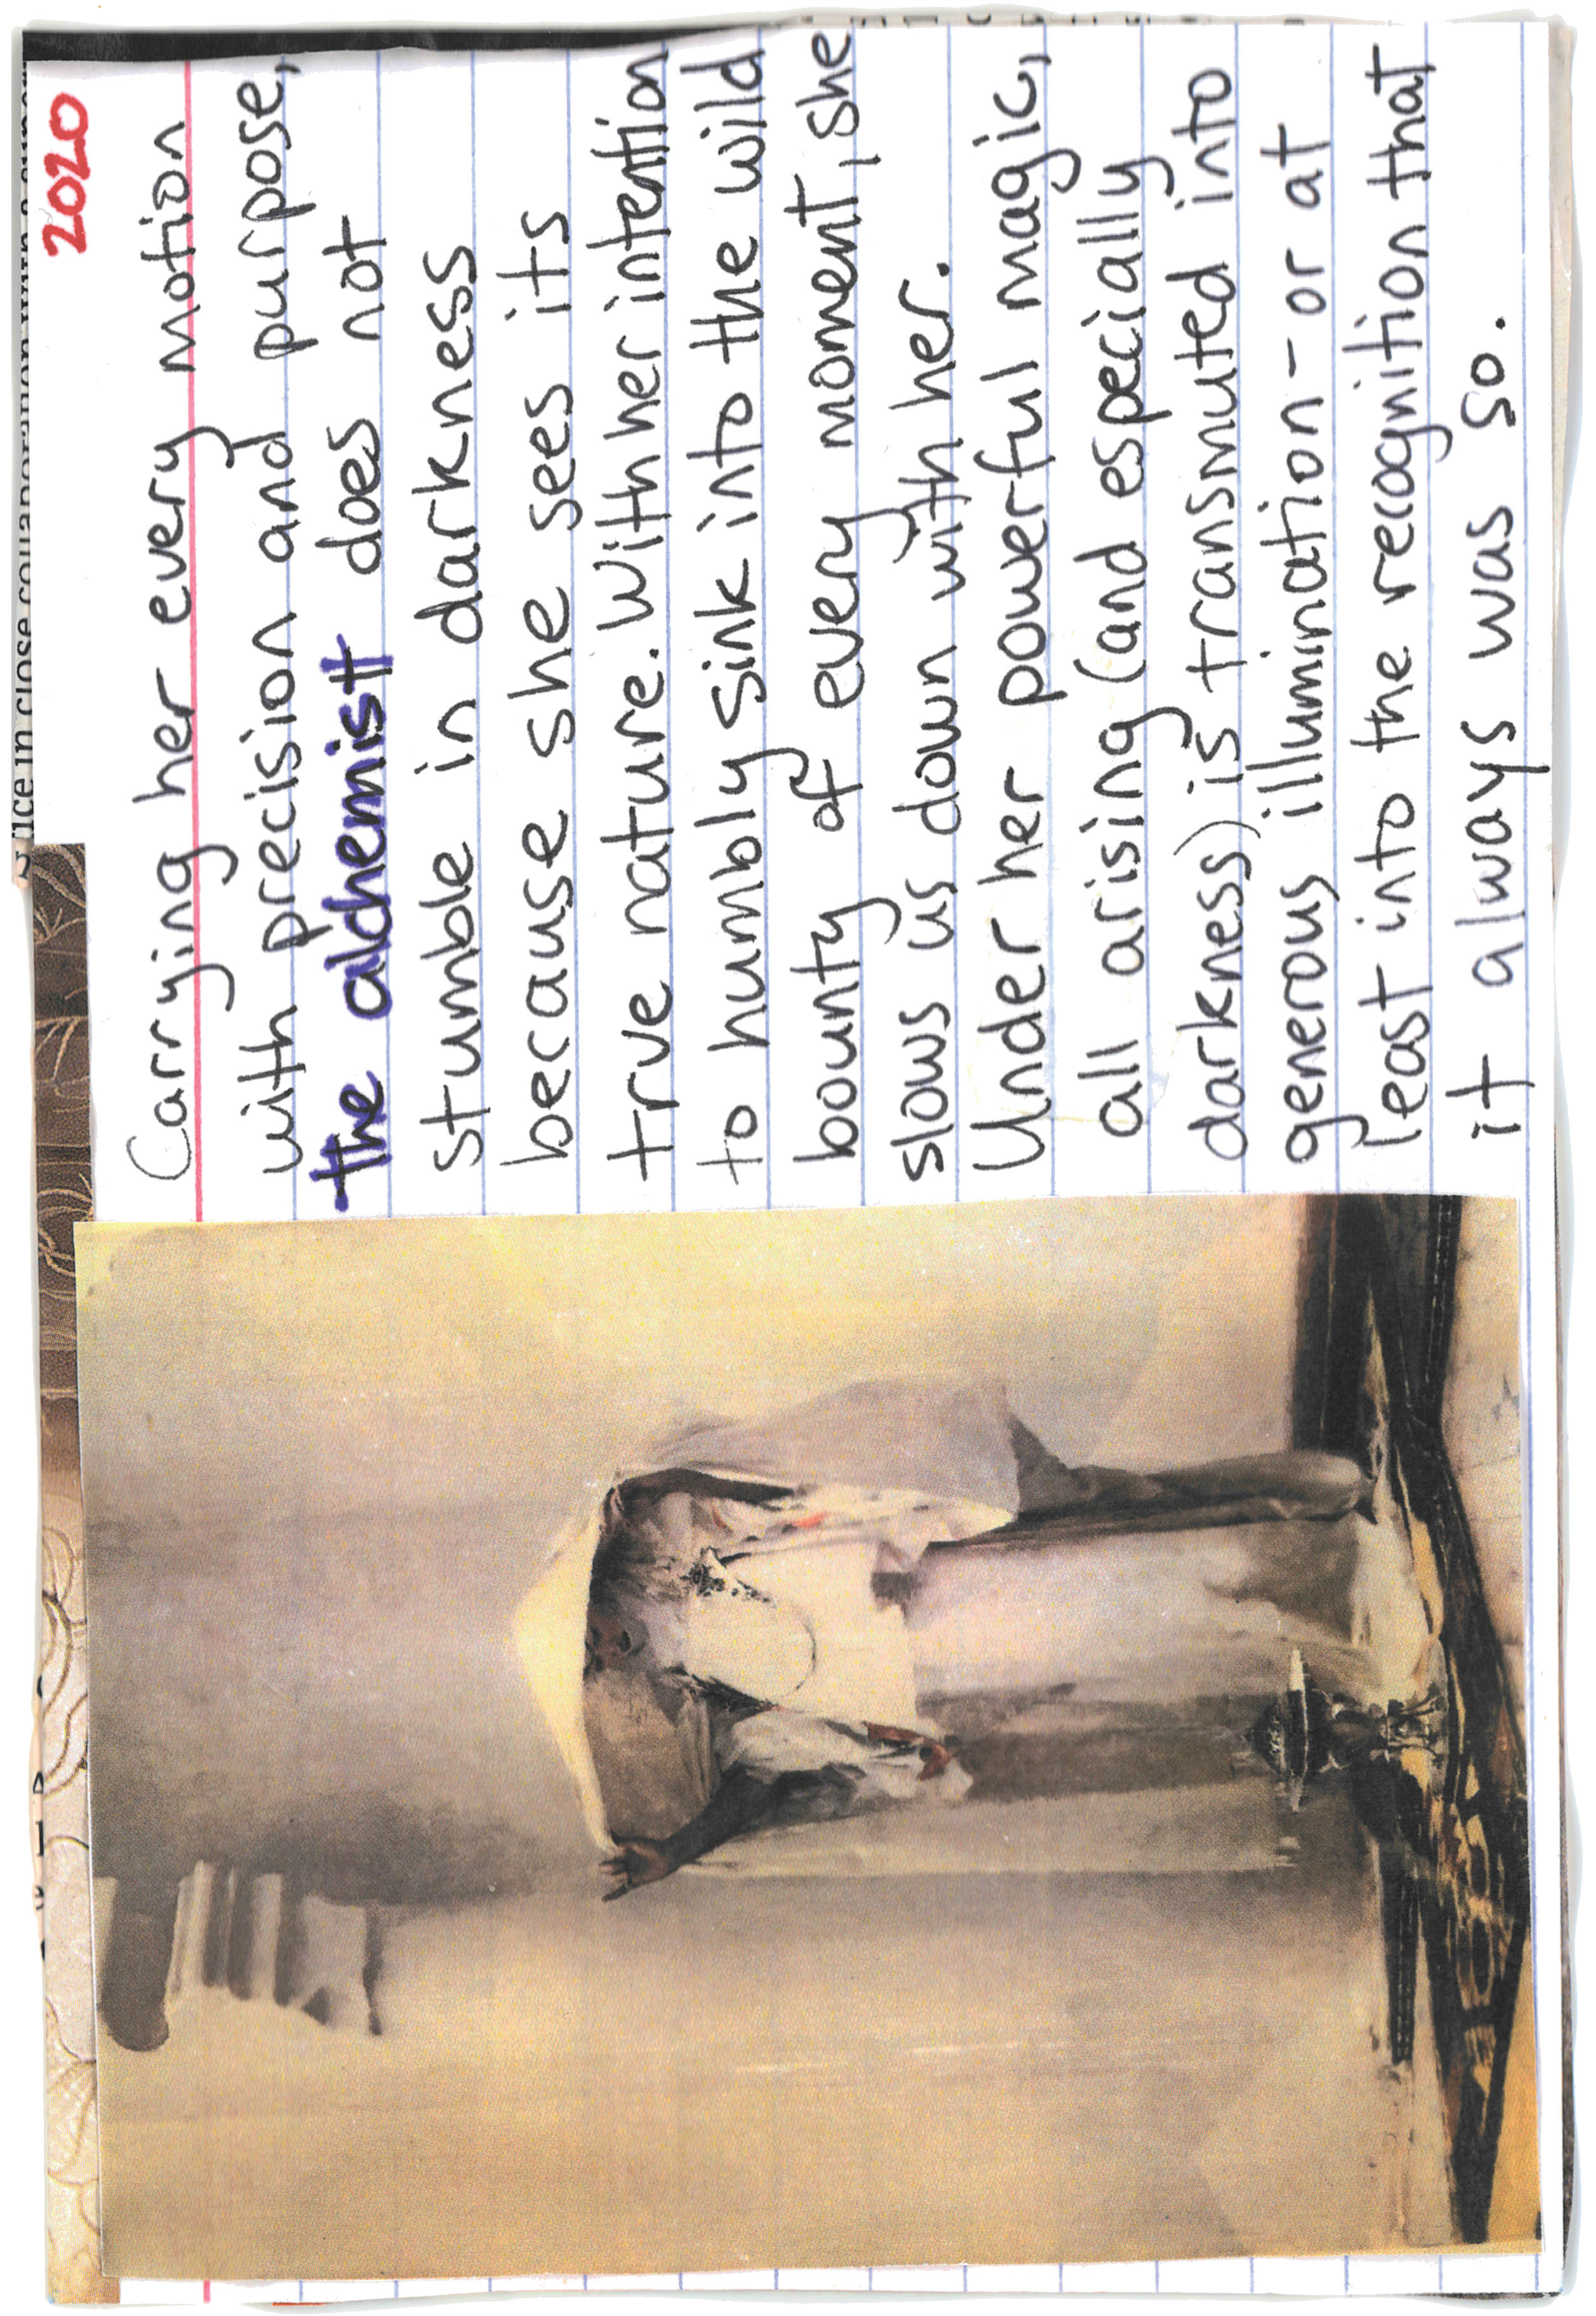 2020
Carrying her every motion
with precision and purpose,
the alchemist does not
stumble in darkness
because she sees its
true nature. With her intention
to humbly sink into the wild
bounty of every moment, she
slows us down with her.
Under her powerful magic,
all arising (and especially
darkness) is transmuted into
generous illumination - or at
least into the recognition that
it always was so.
in close